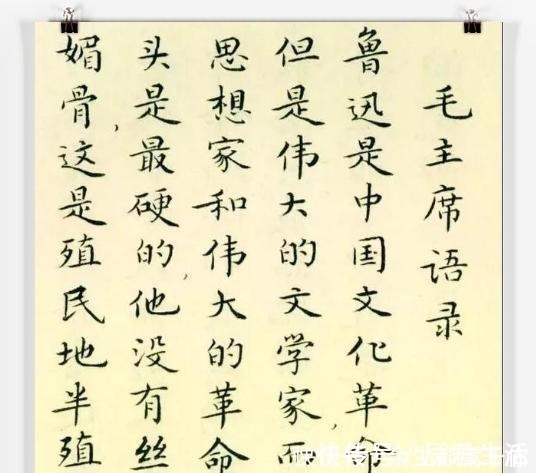 毛主席语录
鲁迅是中国文化革
但是伟大的文学家,而
思想家和伟大的革命
头是最硬的,他没有丝
媚骨,这是殖民地半殖